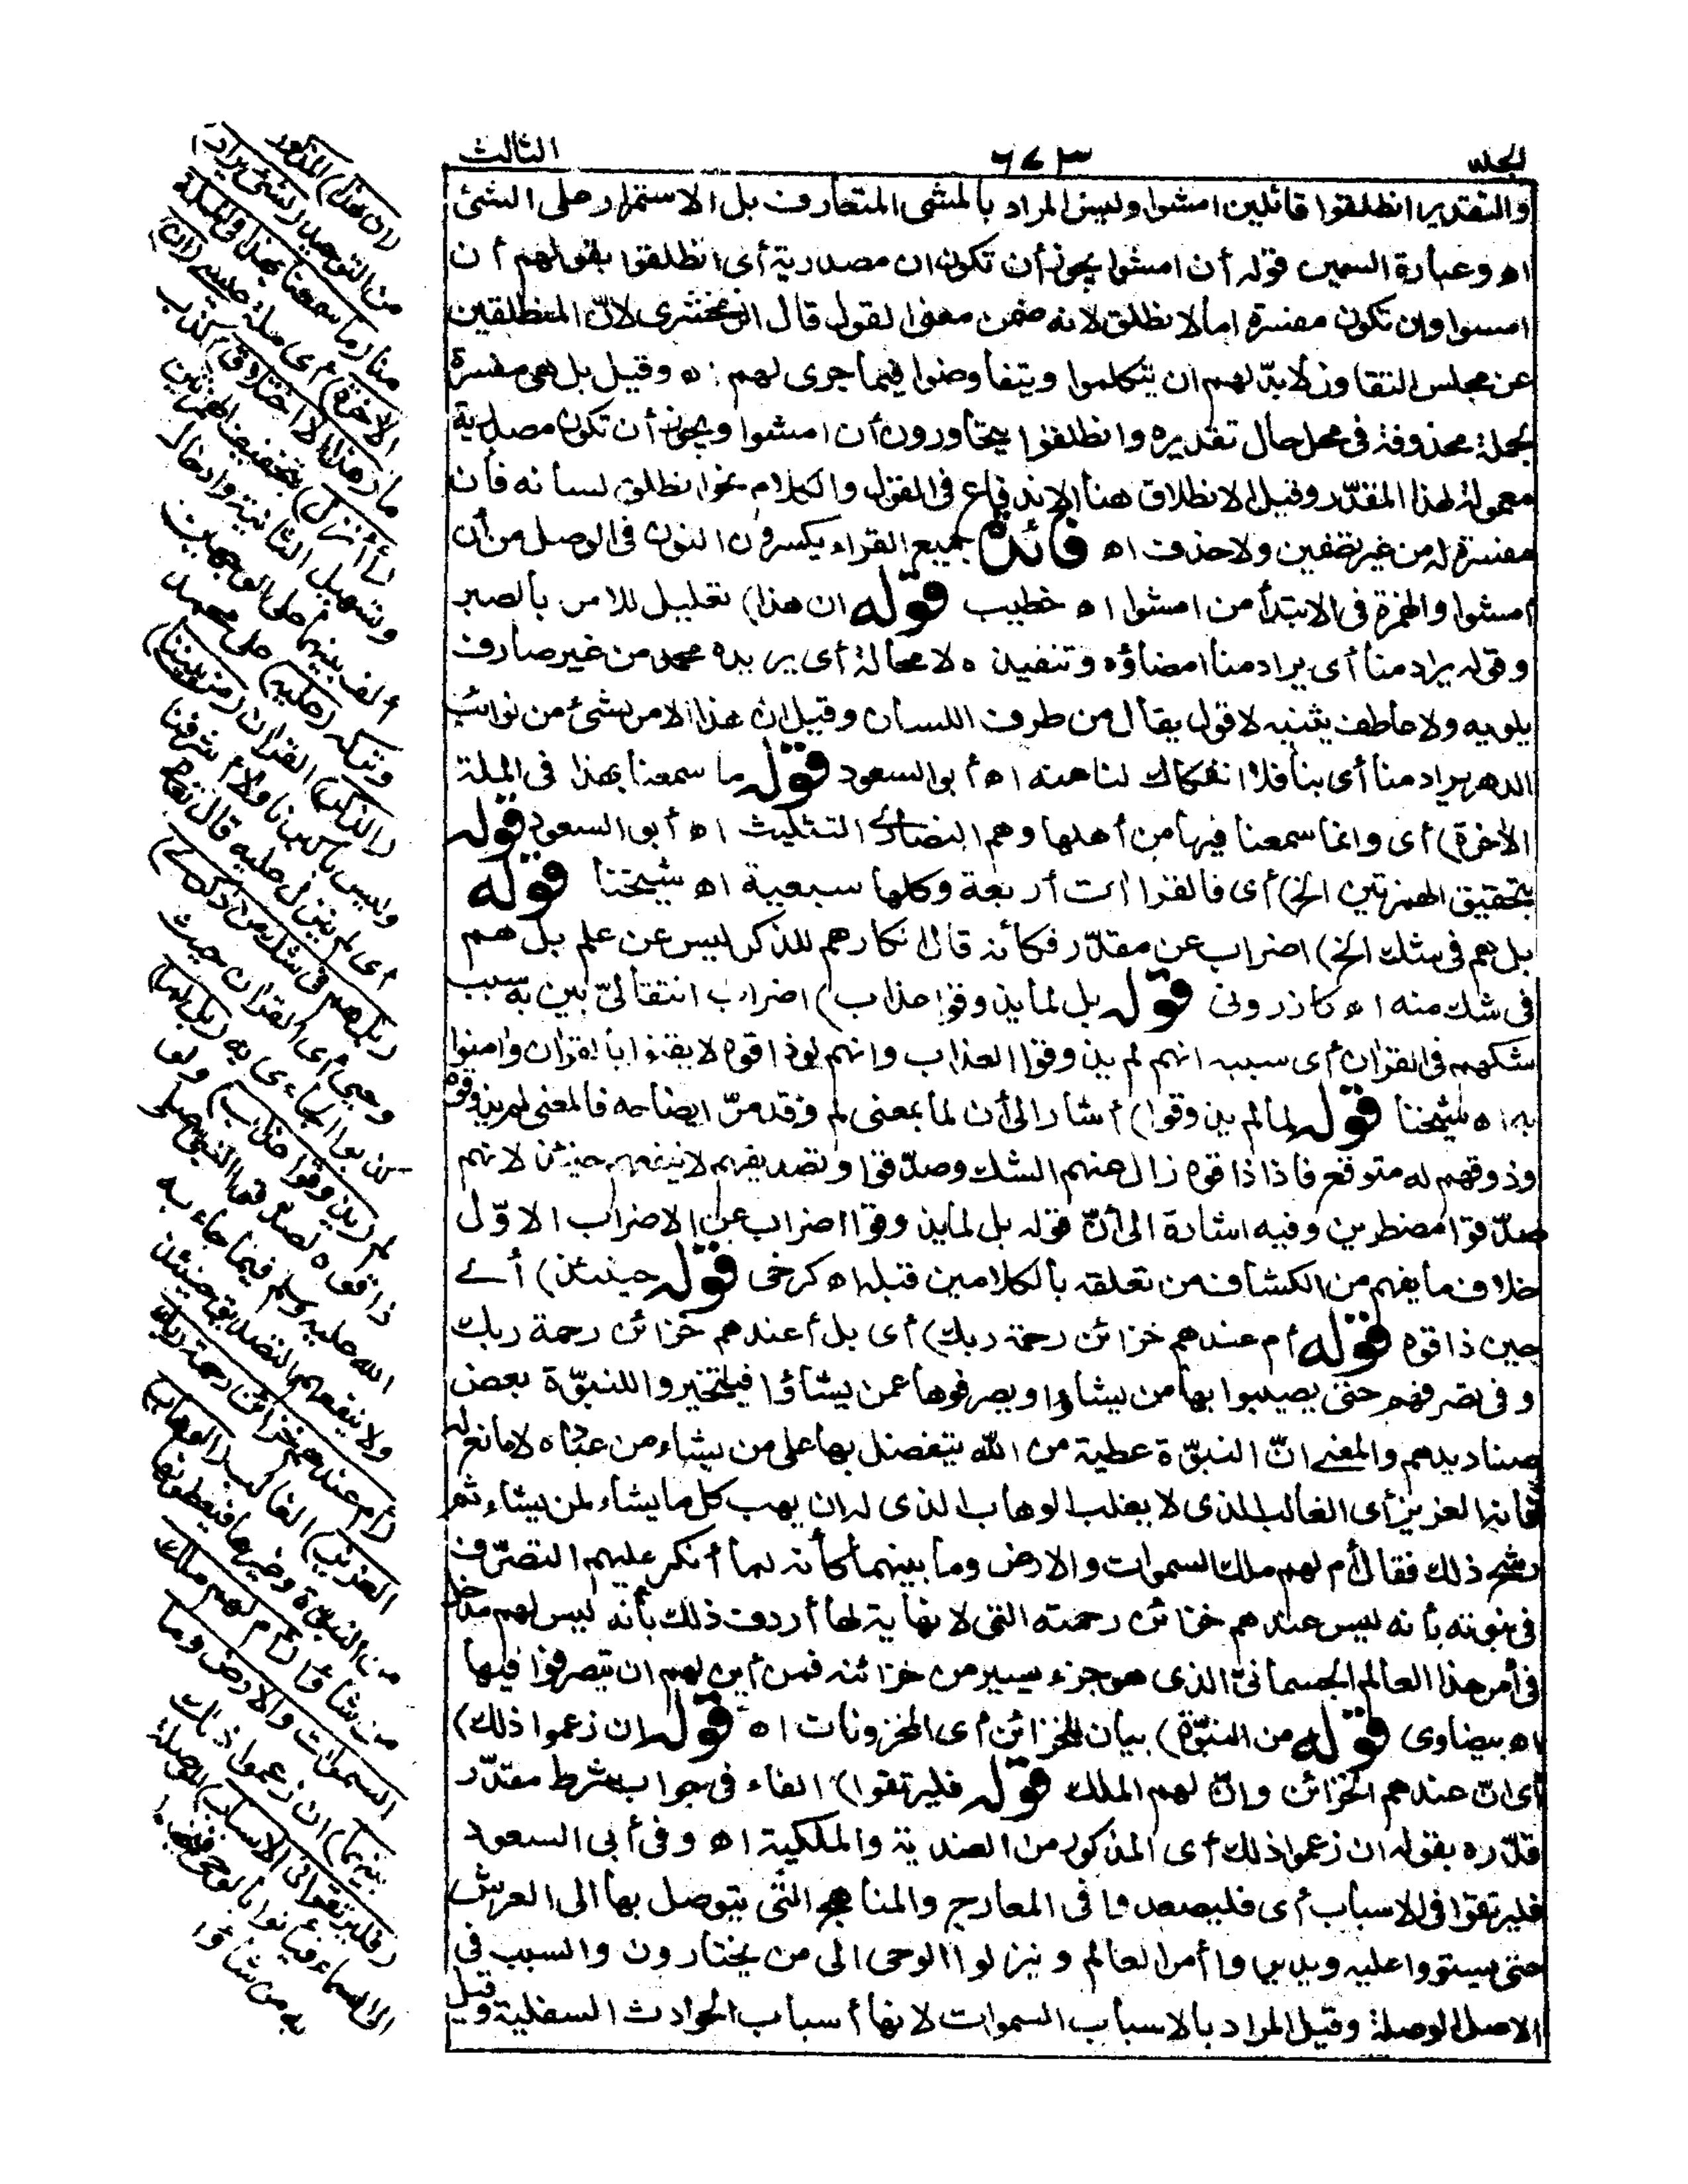 الجلد ٦٤٣ الثالث
والتقدير انطلقوا قائلين امشوا وليس المراد بالمشى المتعارف بل الاستمرار على الشئ
اه وعبارة السمين قوله أن امشوا يجوز أن تكون ان مصدرية أى انطلقوا بقولهم أن
امشوا وان تكون مفسرة اما لانطلق لانه ضمن معنى القول قال الزمخشرى لانّ المنطلقين
عن مجلس التقاول لابدّ لهم ان يتكلموا ويتفاوضوا فيما جرى لهم اه وقيل بل هى مفسرة
لجملة محذوفة فى محل حال تقديره وانطلقوا يتحاورون أن امشوا ويجوز أن تكون مصدرية
معمولة لهذا المقدّر وقيل الانطلاق هنا الاندفاع فى القول والكلام نحو انطلق لسانه فأن
مفسرة له من غير تضمين ولا حذف اه فائدة جميع القراء يكسرون النون فى الوصل من أن
امشوا والهمزة فى الابتدأ من امشوا اه خطيب قوله ان هذا) تعليل للامر بالصبر
وقوله يراد منا أى يراد منا امضاؤه وتنفيذه لا محالة أى يريده محمد من غير صارف
يلويه ولا عاطف يثنيه لا قول يقال من طرف اللسان وقيل ان هذا الامر لشئ من نوائب
الدهر يراد منا أى بنا فلا انفكاك لنا عنه اه أبو السعود قوله ما سمعنا بهذا فى الملة
الآخرة) أى وانما سمعنا فيها من أهلها وهم النصارى التثليث اه أبو السعود قوله
بتحقيق الهمزتين الخ) أى فالقراآت أربعة وكلها سبعية اه شيخنا قوله
بل هم فى شك الخ) اضراب عن مقدّر فكأنه قال انكارهم للذكر ليس عن علم بل هم
فى شك منه اه كازرونى قوله بل لما يذوقوا عذاب) اضراب انتقالىّ بين به سبب
شكهم فى القرآن أى سببه انهم لم يذوقوا العذاب وانهم لو ذاقوه لايقنوا بالقرآن وآمنوا
به اه شيخنا قوله لما لم يذوقوا) أشار الى أن لما بمعنى لم وقد مرّ ايضاحه فالمعنى لم يذوقوه
وذوقهم له متوقع فاذا ذاقوه زال عنهم الشك وصدّقوا وتصديقهم لا ينفعهم حينئذ لانهم
صدّقوا مضطرين وفيه اشارة الى أنّ قوله بل لما يذوقوا اضراب عن الاضراب الاوّل
خلاف ما يفهم من الكشاف من تعلقه بالكلامين قبله اه كرخى قوله حينئذ) أى
حين ذاقوه قوله أم عندهم خزائن رحمة ربك) أى بل أعندهم خزائن رحمة ربك
وفى تصرفهم حتى يصيبوا بها من يشاؤا ويصرفوها عمن يشاؤا فيتخيروا للنبوّة بعض
صناديدهم والمعنى انّ النبوّة عطية من الله يتفضل بها على من يشاء من عباده لا مانع له
فانه العزيز أى الغالب الذى لا يغلب الوهاب الذى له ان يهب كل ما يشاء لمن يشاء ثم
رشح ذلك فقال أم لهم ملك السموات والارض وما بينهما كأنه لما أنكر عليهم التصرّف
فى نبوته بأنه ليس عندهم خزائن رحمته التى لا نهاية لها أردف ذلك بأنه ليس لهم مدخل
فى أمر هذا العالم الجسمانىّ الذى هو جزء يسير من خزائنه فمن أين لهم ان يتصرفوا فيها
اه بيضاوى قوله من النبوّة) بيان للخزائن أى المخزونات اه قوله ان زعموا ذلك)
أى ان عندهم الخزائن وانّ لهم الملك قوله فليرتقوا) الفاء فى جواب شرط مقدّر
قدّره بقوله ان زعموا ذلك أى المذكور من العندية والملكية اه وفى أبى السعود
فليرتقوا فى الاسباب أى فليصعدوا فى المعارج والمناهج التى يتوصل بها الى العرش
حتى يستووا عليه ويدبروا أمر العالم وينزلوا الوحى الى من يختارون والسبب فى
الاصل الوصلة وقيل المراد بالاسباب السموات لانها أسباب الحوادث السفلية وقيل
(ان هذا) المذكور
من التوحيد (لشئ يراد)
منا (ما سمعنا بهذا فى الملة
الآخرة) أى ملة عيسى (ان)
ما (هذا الا اختلاق) كذب
(أأنزل) بتحقيق الهمزتين
وتسهيل الثانية وادخال
ألف بينهما على الوجهين
وتركه (عليه) على محمد
(الذكر) القرآن (من بيننا)
وليس بأكبرنا ولا أشرفنا
أى لم ينزل عليه قال تعالى
(بل هم فى شك من ذكرى)
وحيى أى القرآن حيث
كذبوا الجاءى به (بل لما)
لم (يذوقوا عذاب) ولو
ذاقوه لصدّقوا النبىّ صلى
الله عليه وسلم فيما جاء به
ولا ينفعهم التصديق حينئذ
(أم عندهم خزائن رحمة ربك
العزيز) الغالب (الوهاب)
من النبوّة وغيرها فيعطونها
من شاؤا (أم لهم ملك
السموات والارض وما
بينهما) ان زعموا ذلك
(فليرتقوا فى الاسباب) الموصلة
الى السماء فيأتوا بالوحى فيخصوا
به من شاؤا